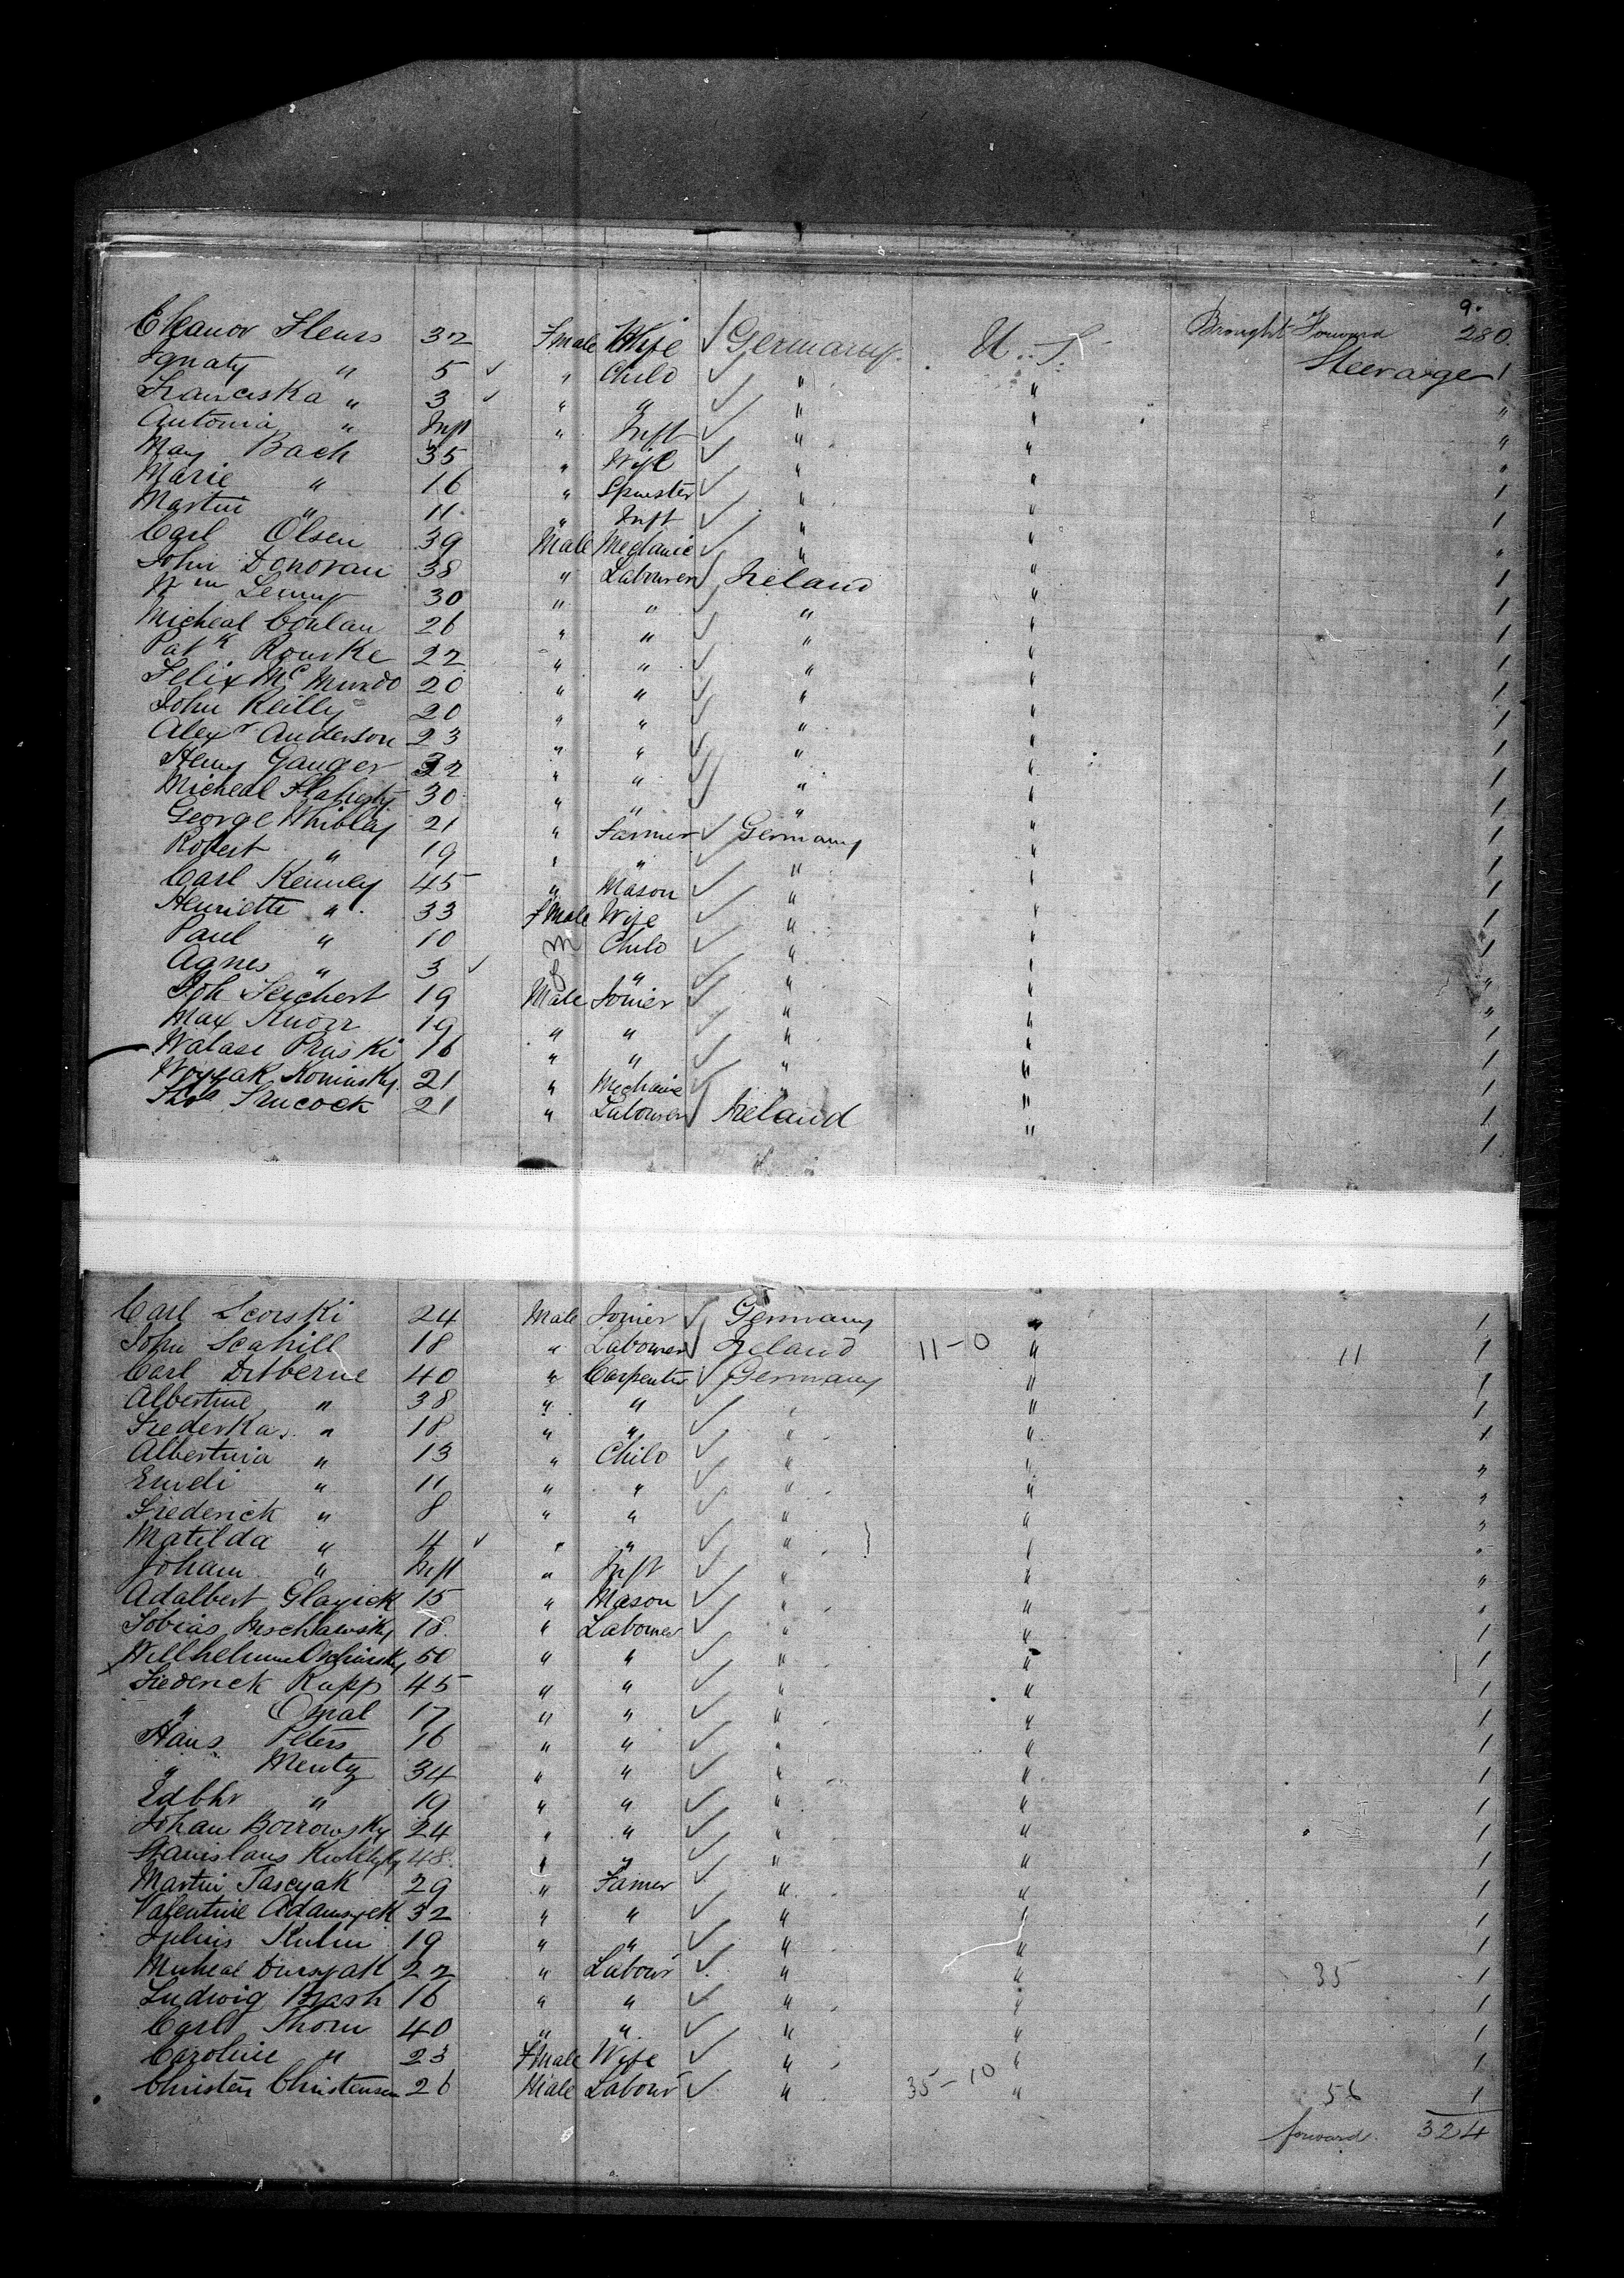 9.
Eleanor Fleurs 32 Fmale Wife ✓ Germany U. S. Brought Forward 280
Ignaty " 5 ✓ " Child ✓ " " Steerage 1
Franciska " 3 ✓ " " ✓ " " "
Antonia " Inft " Inft ✓ " " "
May Bach 35 " Wife ✓ " " "
Marie " 16 " Spinster ✓ " " 1
Martin " 11 " Inft ✓ " " 1
Carl Olsen 39 Male Mechanic ✓ " " "
John Donovan 38 " Labourer ✓ Ireland " 1
Wm 30 " " ✓ " " 1
Micheal Conlan 26 " " ✓ " " 1
Patk Rourke 22 " " ✓ " " 1
Felix McMurdo 20 " " ✓ " " 1
John Reilly 20 " " ✓ " " 1
Alexr Anderson 23 " " ✓ " " 1
Henry Gauger 32 " " ✓ " " 1
Micheal Flaherty 30 " " ✓ " " 1
George Whibley 21 " Farmer ✓ Germany " 1
Robert " 19 " " ✓ " " 1
Carl Kenney 45 " Mason ✓ " " 1
Henriette " 33 Fmale Wife ✓ " " 1
Paul " 10 m Child ✓ " " 1
Agnes " 3 ✓ f " ✓ " " "
Joh Seichert 19 Male Joiner ✓ " " "
Max Knorr 19 " " ✓ " " 1
Walase Pruski 16 " " ✓ " " 1
Koninsky 21 " Mechanic ✓ " " 1
Thos Simcock 21 " Labourer ✓ Ireland " 1
1
Carl Scorski 24 Male Joiner ✓ Germany " 1
John Scahill 18 " Labourer ✓ Ireland 11-0 " 11 1
Carl Ditberne 40 " Carpenter ✓ Germany " 1
Albertine " 38 " " ✓ " " 1
Frederka " 18 " " ✓ " " 1
Albertina " 13 " Child ✓ " " "
Emeli " 11 " " ✓ " " "
Frederick " 8 " " ✓ " " "
Matilda " 4 ✓ " " ✓ " " "
Joham " Inft " Inft ✓ " " "
Adalbert Glayick 15 " Mason ✓ " " "
Tobias 18 " Labourer ✓ " " 1
Willhelmine 50 " " ✓ " " 1
Frederick Rapp 45 " " ✓ " " 1
" Opal 17 " " ✓ " " 1
Hans Peters 16 " " ✓ " " 1
" Mentz 34 " " ✓ " " 1
Edbhr " 19 " " ✓ " " 1
Johan Borrowsky 24 " " ✓ " " 1
Stanislaus 48 " " ✓ " " 1
Martin Tascyak 29 " Famer ✓ " " 1
Valentine Adamsyek 32 " " ✓ " " 1
Julius Kuhn 19 " " ✓ " " 1
Micheal Dursyak 22 " Labour ✓ " " 35 1
Ludwig Brash 16 " " ✓ " " 1
Carl Thorn 40 " " ✓ " " 1
Caroline " 23 Fmale Wife ✓ " " 1
Christen Christensen 26 Male Labour ✓ " 35-10 " 56 1
forward. 324